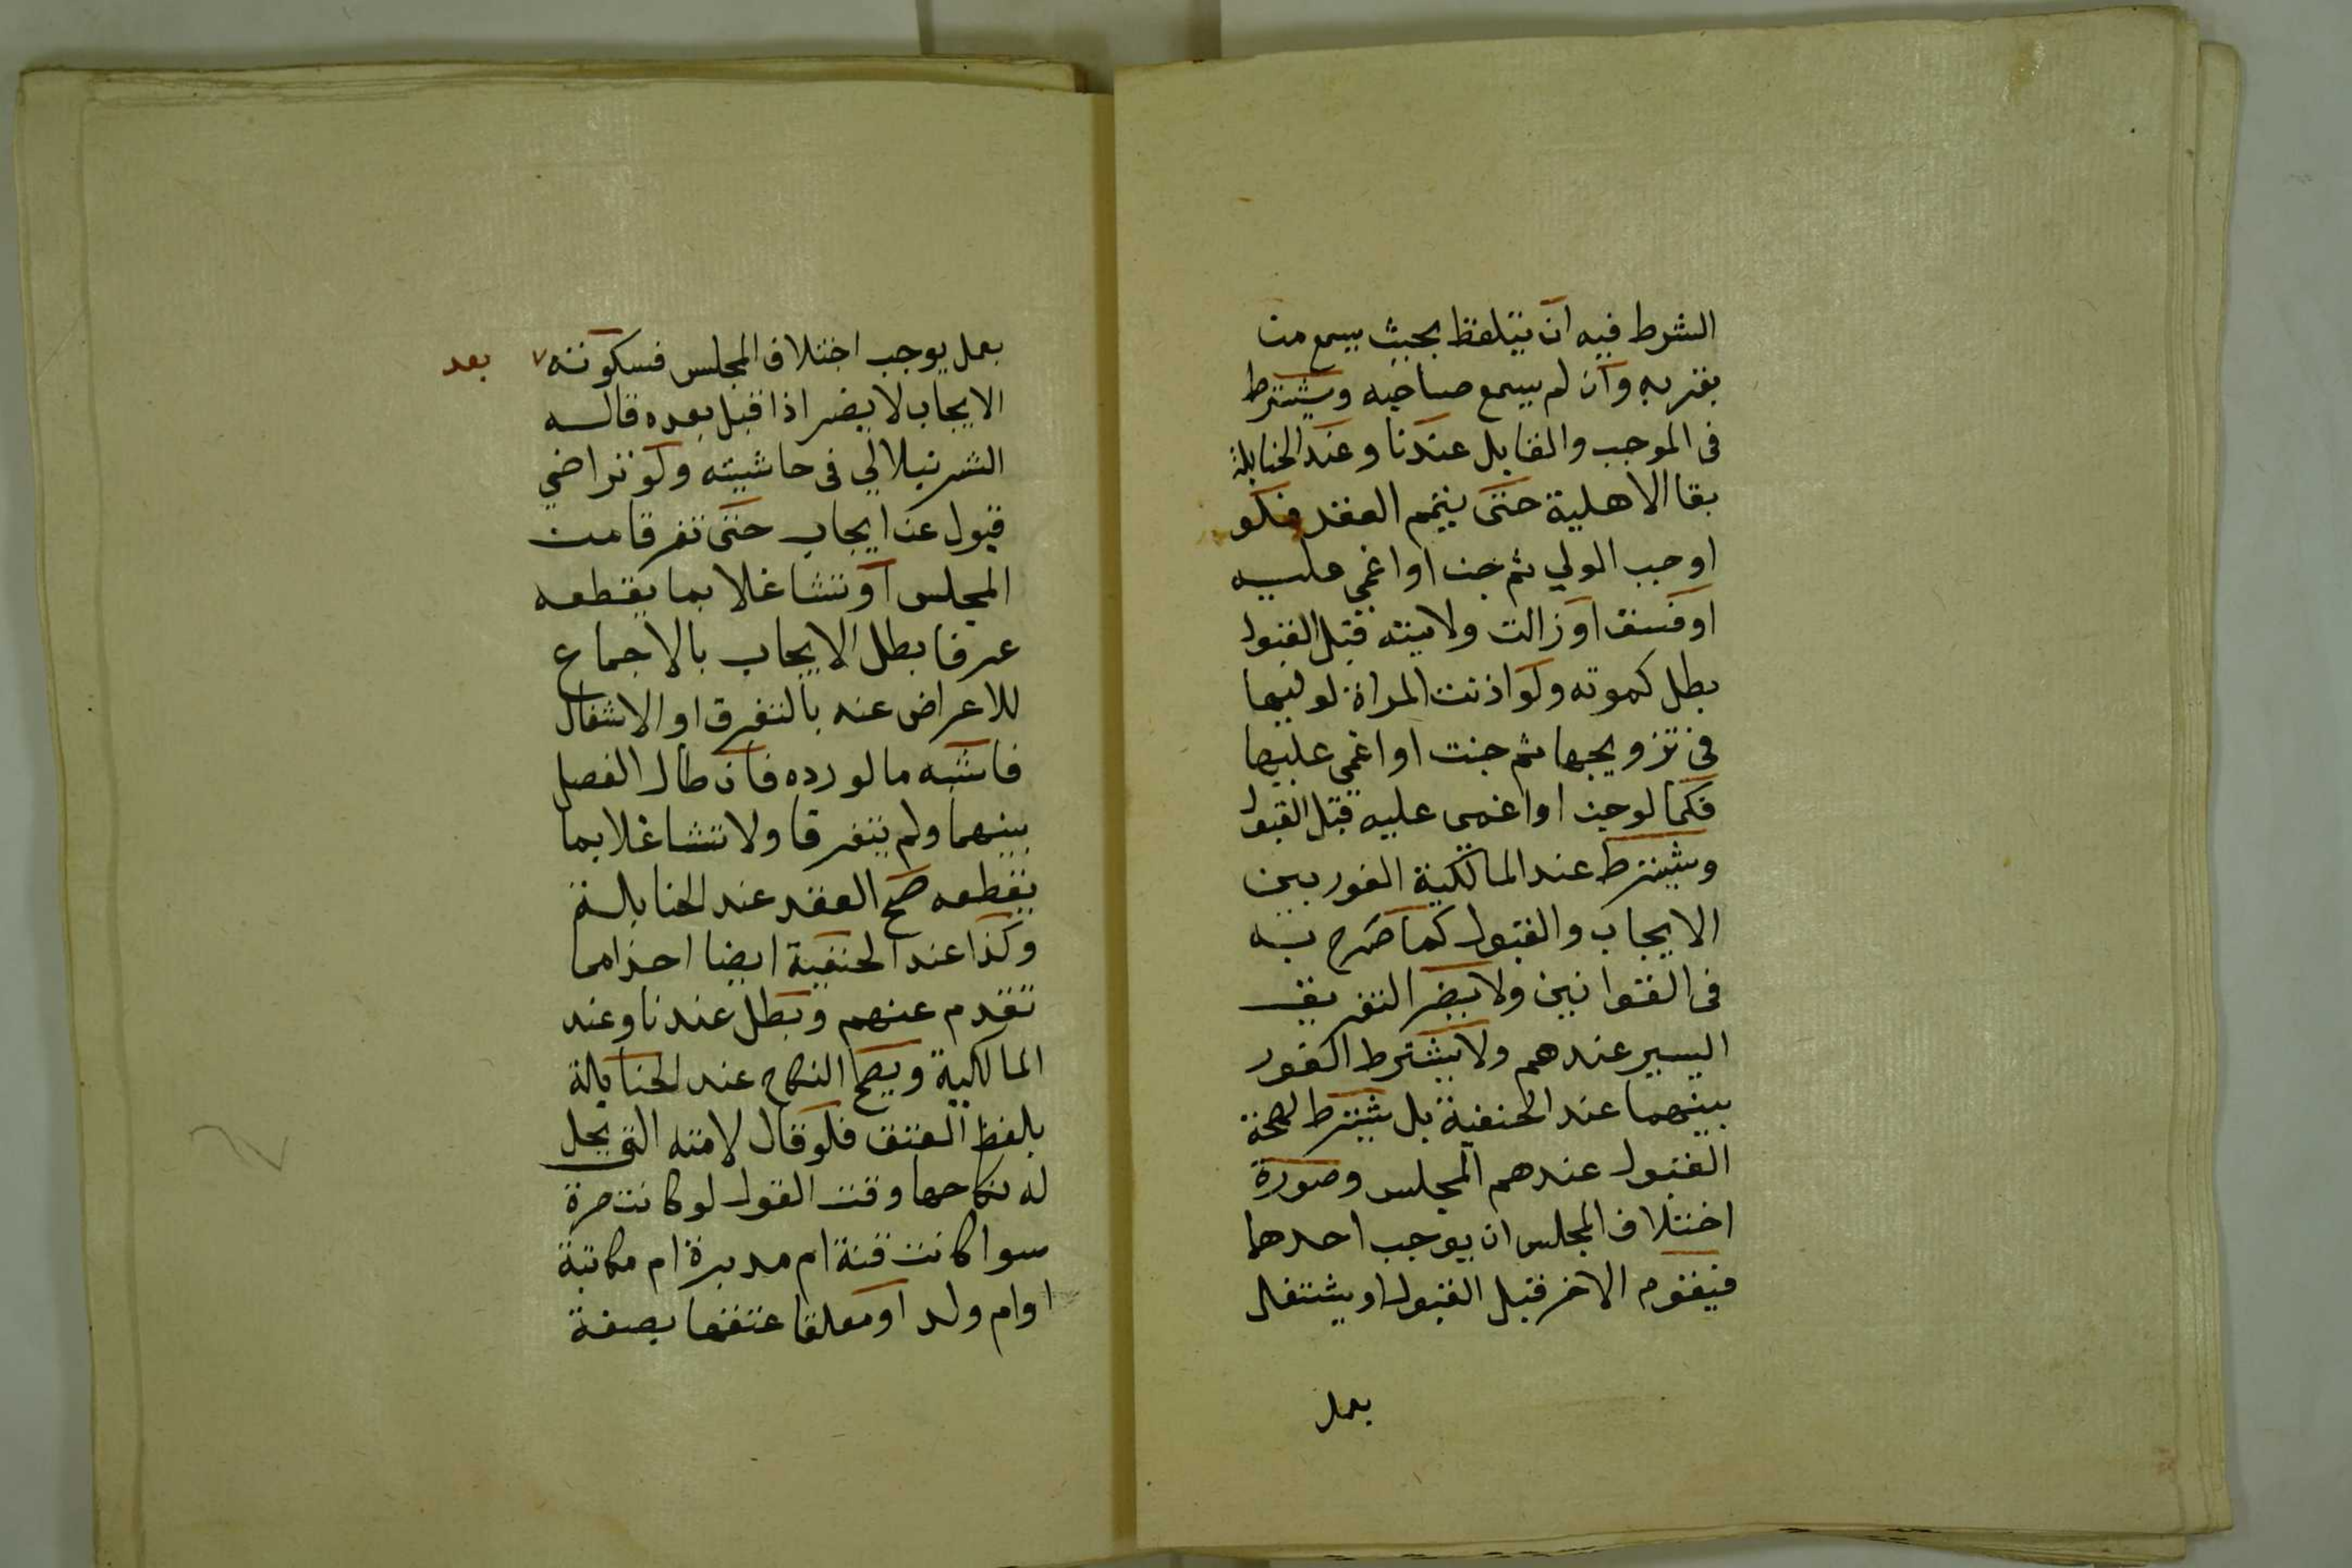 الشرط فيه ان يتلفظ بحيث يسمع من
بقربه وان لم يسمع صاحبه ويشترط
فى الموجب والقابل عندنا وعند الحنابلة
بقا الاهلية حتى يتم العقد فلو
اوجب الولي ثم جن او اغمي عليه
او فسق او زالت ولايته قبل القبول
بطل كموته ولو اذنت المراة لوليها
فى تزويجها ثم جنت او اغمي عليها
فكما لو جن او اغمى عليه قبل القبول
ويشترط عند المالكية الفور بين
الايجاب والقبول كما صرح به
فى القوانين ولا يضر التفريق
اليسير عندهم ولا يشترط الفور
بينهما عند الحنفية بل يشترط لصحة
القبول عندهم المجلس وصورة
اختلاف المجلس ان يوجب احدهما
فيقوم الاخر قبل القبول او يشتغل
بعمل
بعمل يوجب اختلاف المجلس فسكوته ٧ بعد
الايجاب لا يضر اذا قبل بعده قاله
الشرنبلالي فى حاشيته ولو تراضي
قبول عن ايجاب حتى تفرقا من
المجلس او تشاغلا بما يقطعه
عرفا بطل الايجاب بالاجماع
للاعراض عنه بالتفرق او الاشتغال
فاشبه ما لو رده فان طال الفصل
بينهما ولم يتفرقا ولا تشاغلا بما
يقطعه صح العقد عند الحنابلة
وكذا عند الحنفية ايضا اخذا مما
تقدم عنهم وبطل عندنا وعند
المالكية ويصح النكاح عند الحنابلة
بلفظ العتق فلو قال لامته التى يحل
له نكاحها وقت القول لو كانت حرة
سوا كانت قنة ام مدبرة ام مكاتبة
او ام ولد او معلقا عتقها بصفة